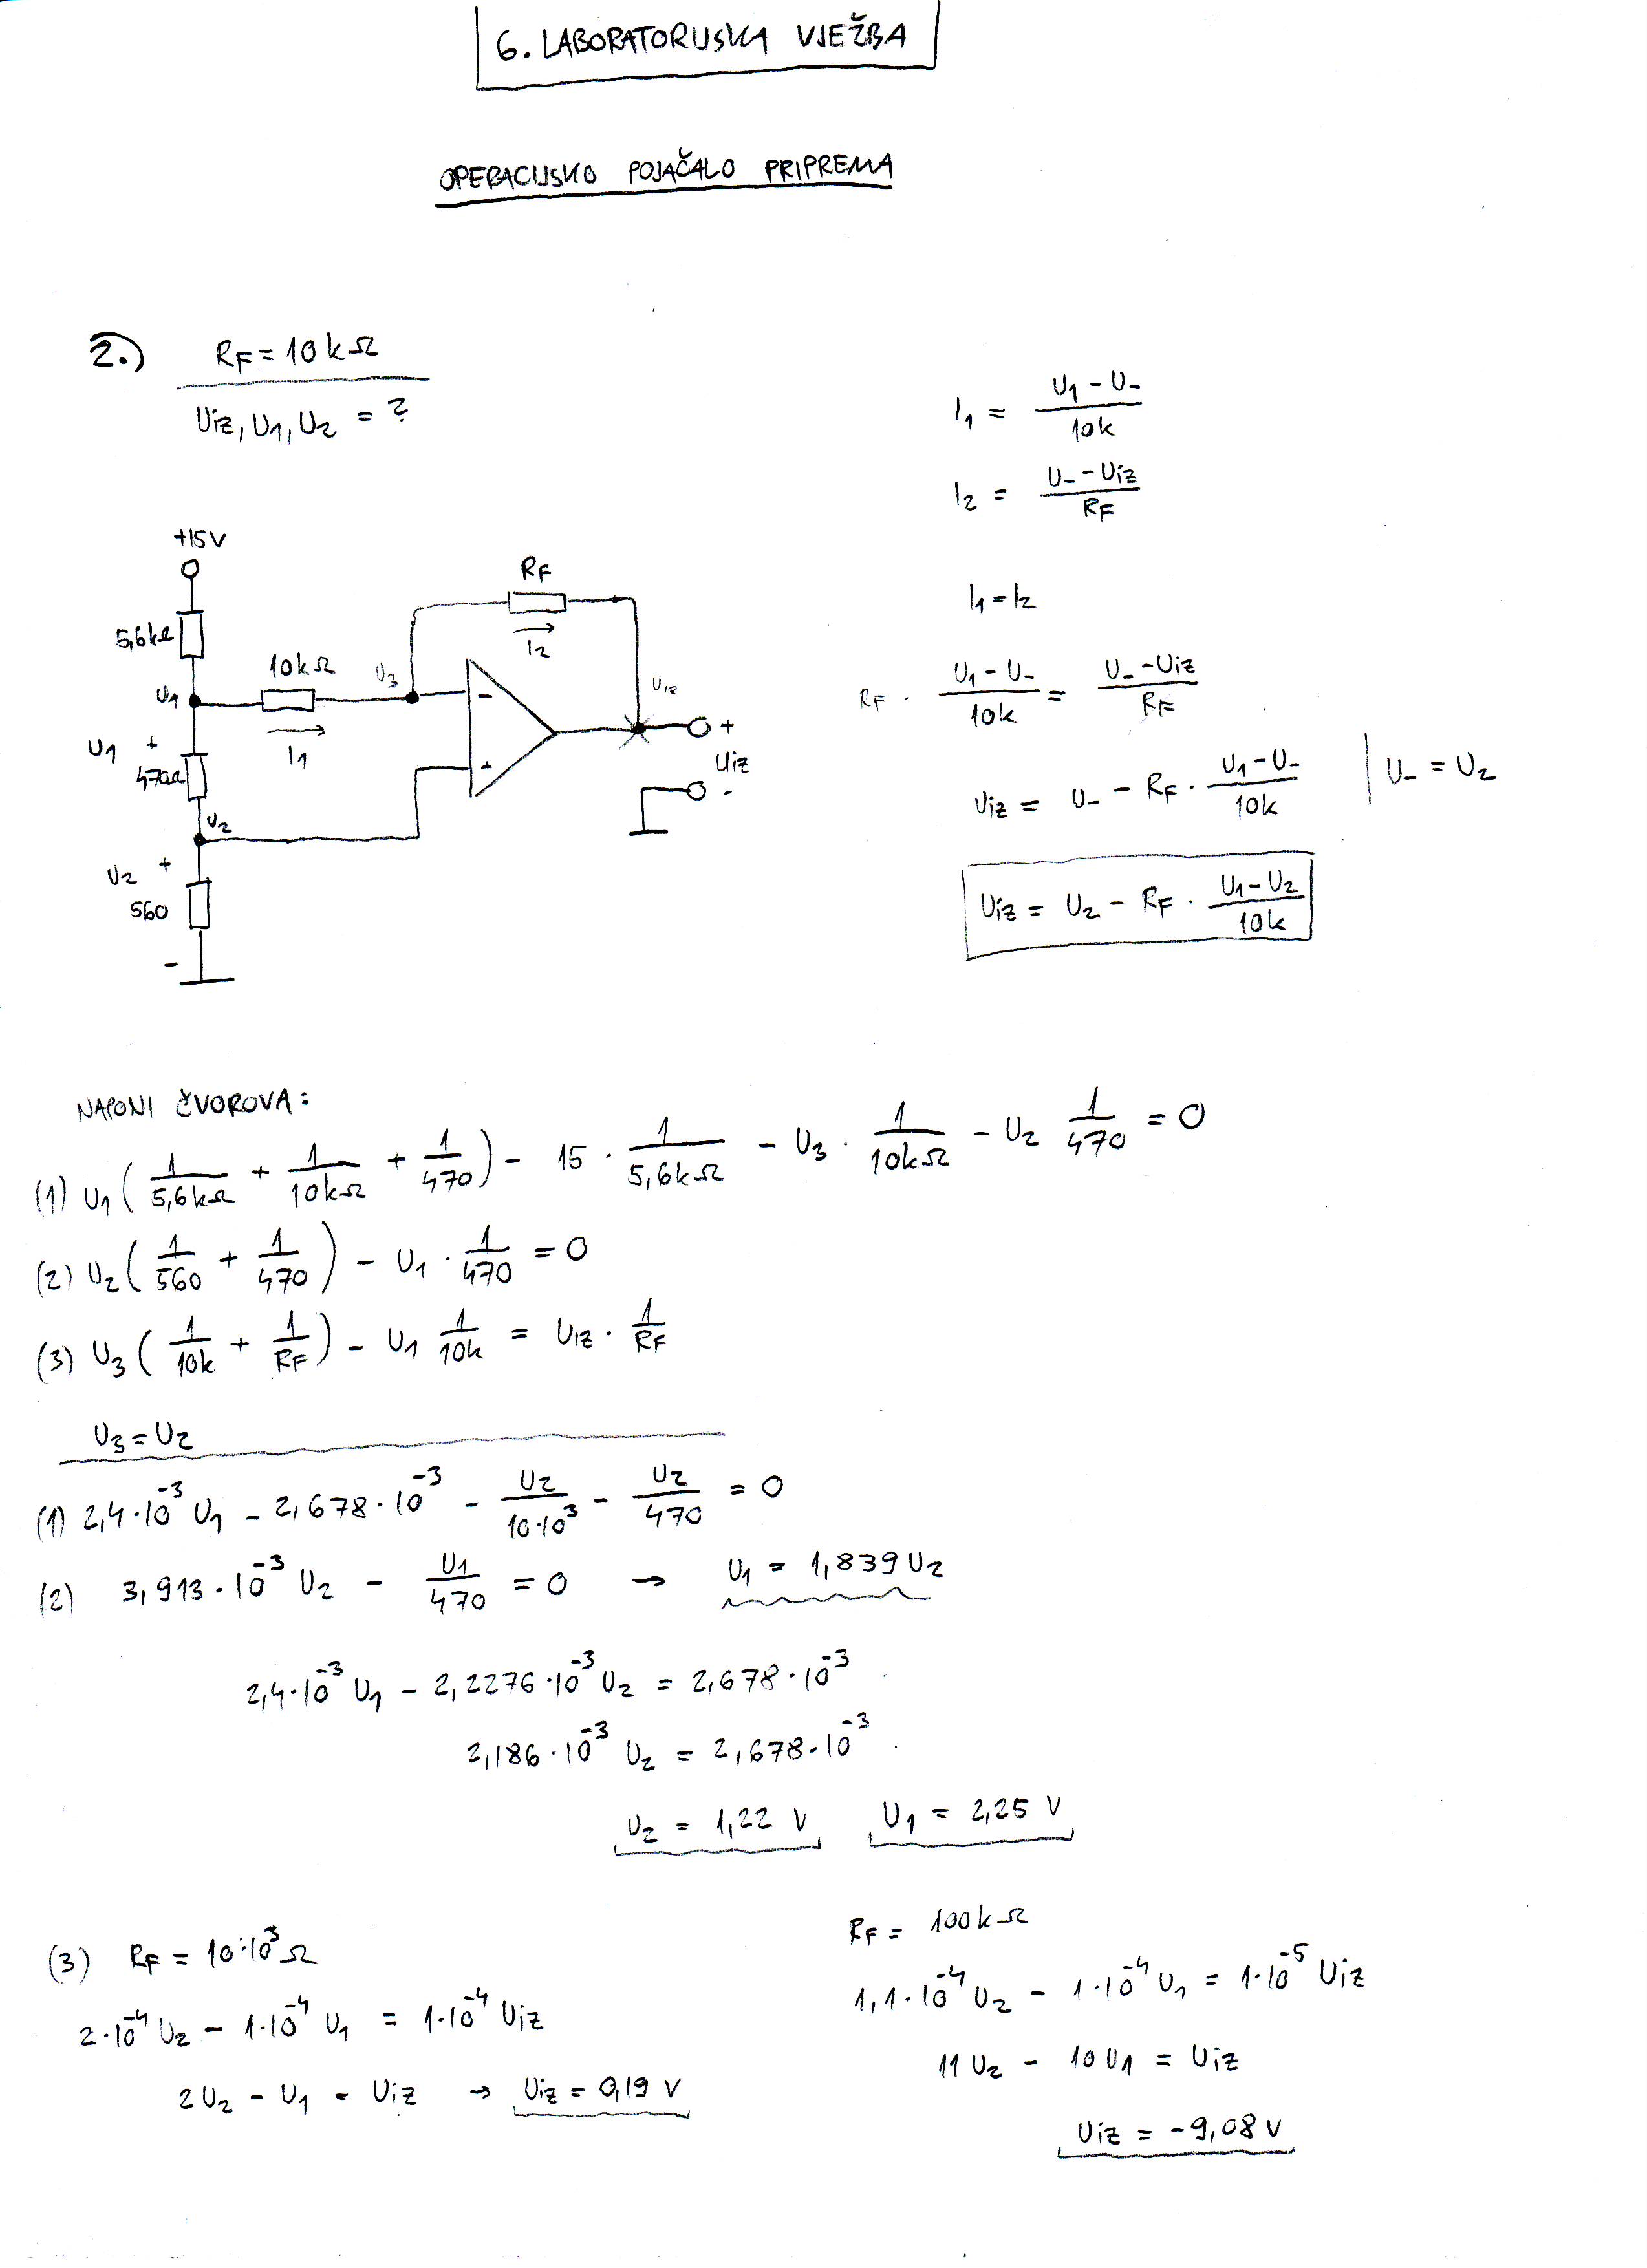 6. LABORATORIJSKA VJEŽBA
OPERACIJSKO POJAČALO PRIPREMA
2.) RF = 10 kΩ
Uiz, U1, U2 = ?
I1 = (U1 - U-) / 10k
I2 = (U- - Uiz) / RF
I1 = I2
RF · (U1 - U-) / 10k = (U- - Uiz) / RF
Uiz = U- - RF · (U1 - U-) / 10k | U- = U2
Uiz = U2 - RF · (U1 - U2) / 10k
+15V
5,6kΩ
U1
10kΩ
I1
U3
RF
I2
Uiz
-
+
+
Uiz
-
U1 +
470Ω
U2
U2 +
560
-
NAPONI ČVOROVA:
(1) U1 (1/5,6kΩ + 1/10kΩ + 1/470) - 15 · 1/5,6kΩ - U3 · 1/10kΩ - U2 1/470 = 0
(2) U2 (1/560 + 1/470) - U1 · 1/470 = 0
(3) U3 (1/10k + 1/RF) - U1 1/10k = Uiz · 1/RF
U3 = U2
(1) 2,4·10^-3 U1 - 2,678·10^-3 - U2/10·10^3 - U2/470 = 0
(2) 3,913·10^-3 U2 - U1/470 = 0 → U1 = 1,839 U2
2,4·10^-3 U1 - 2,2276·10^-3 U2 = 2,678·10^-3
2,186·10^-3 U2 = 2,678·10^-3
U2 = 1,22 V U1 = 2,25 V
(3) RF = 10·10^3 Ω
2·10^-4 U2 - 1·10^-4 U1 = 1·10^-4 Uiz
2U2 - U1 = Uiz → Uiz = 0,19 V
RF = 100kΩ
1,1·10^-4 U2 - 1·10^-4 U1 = 1·10^-5 Uiz
11 U2 - 10 U1 = Uiz
Uiz = -9,08 V